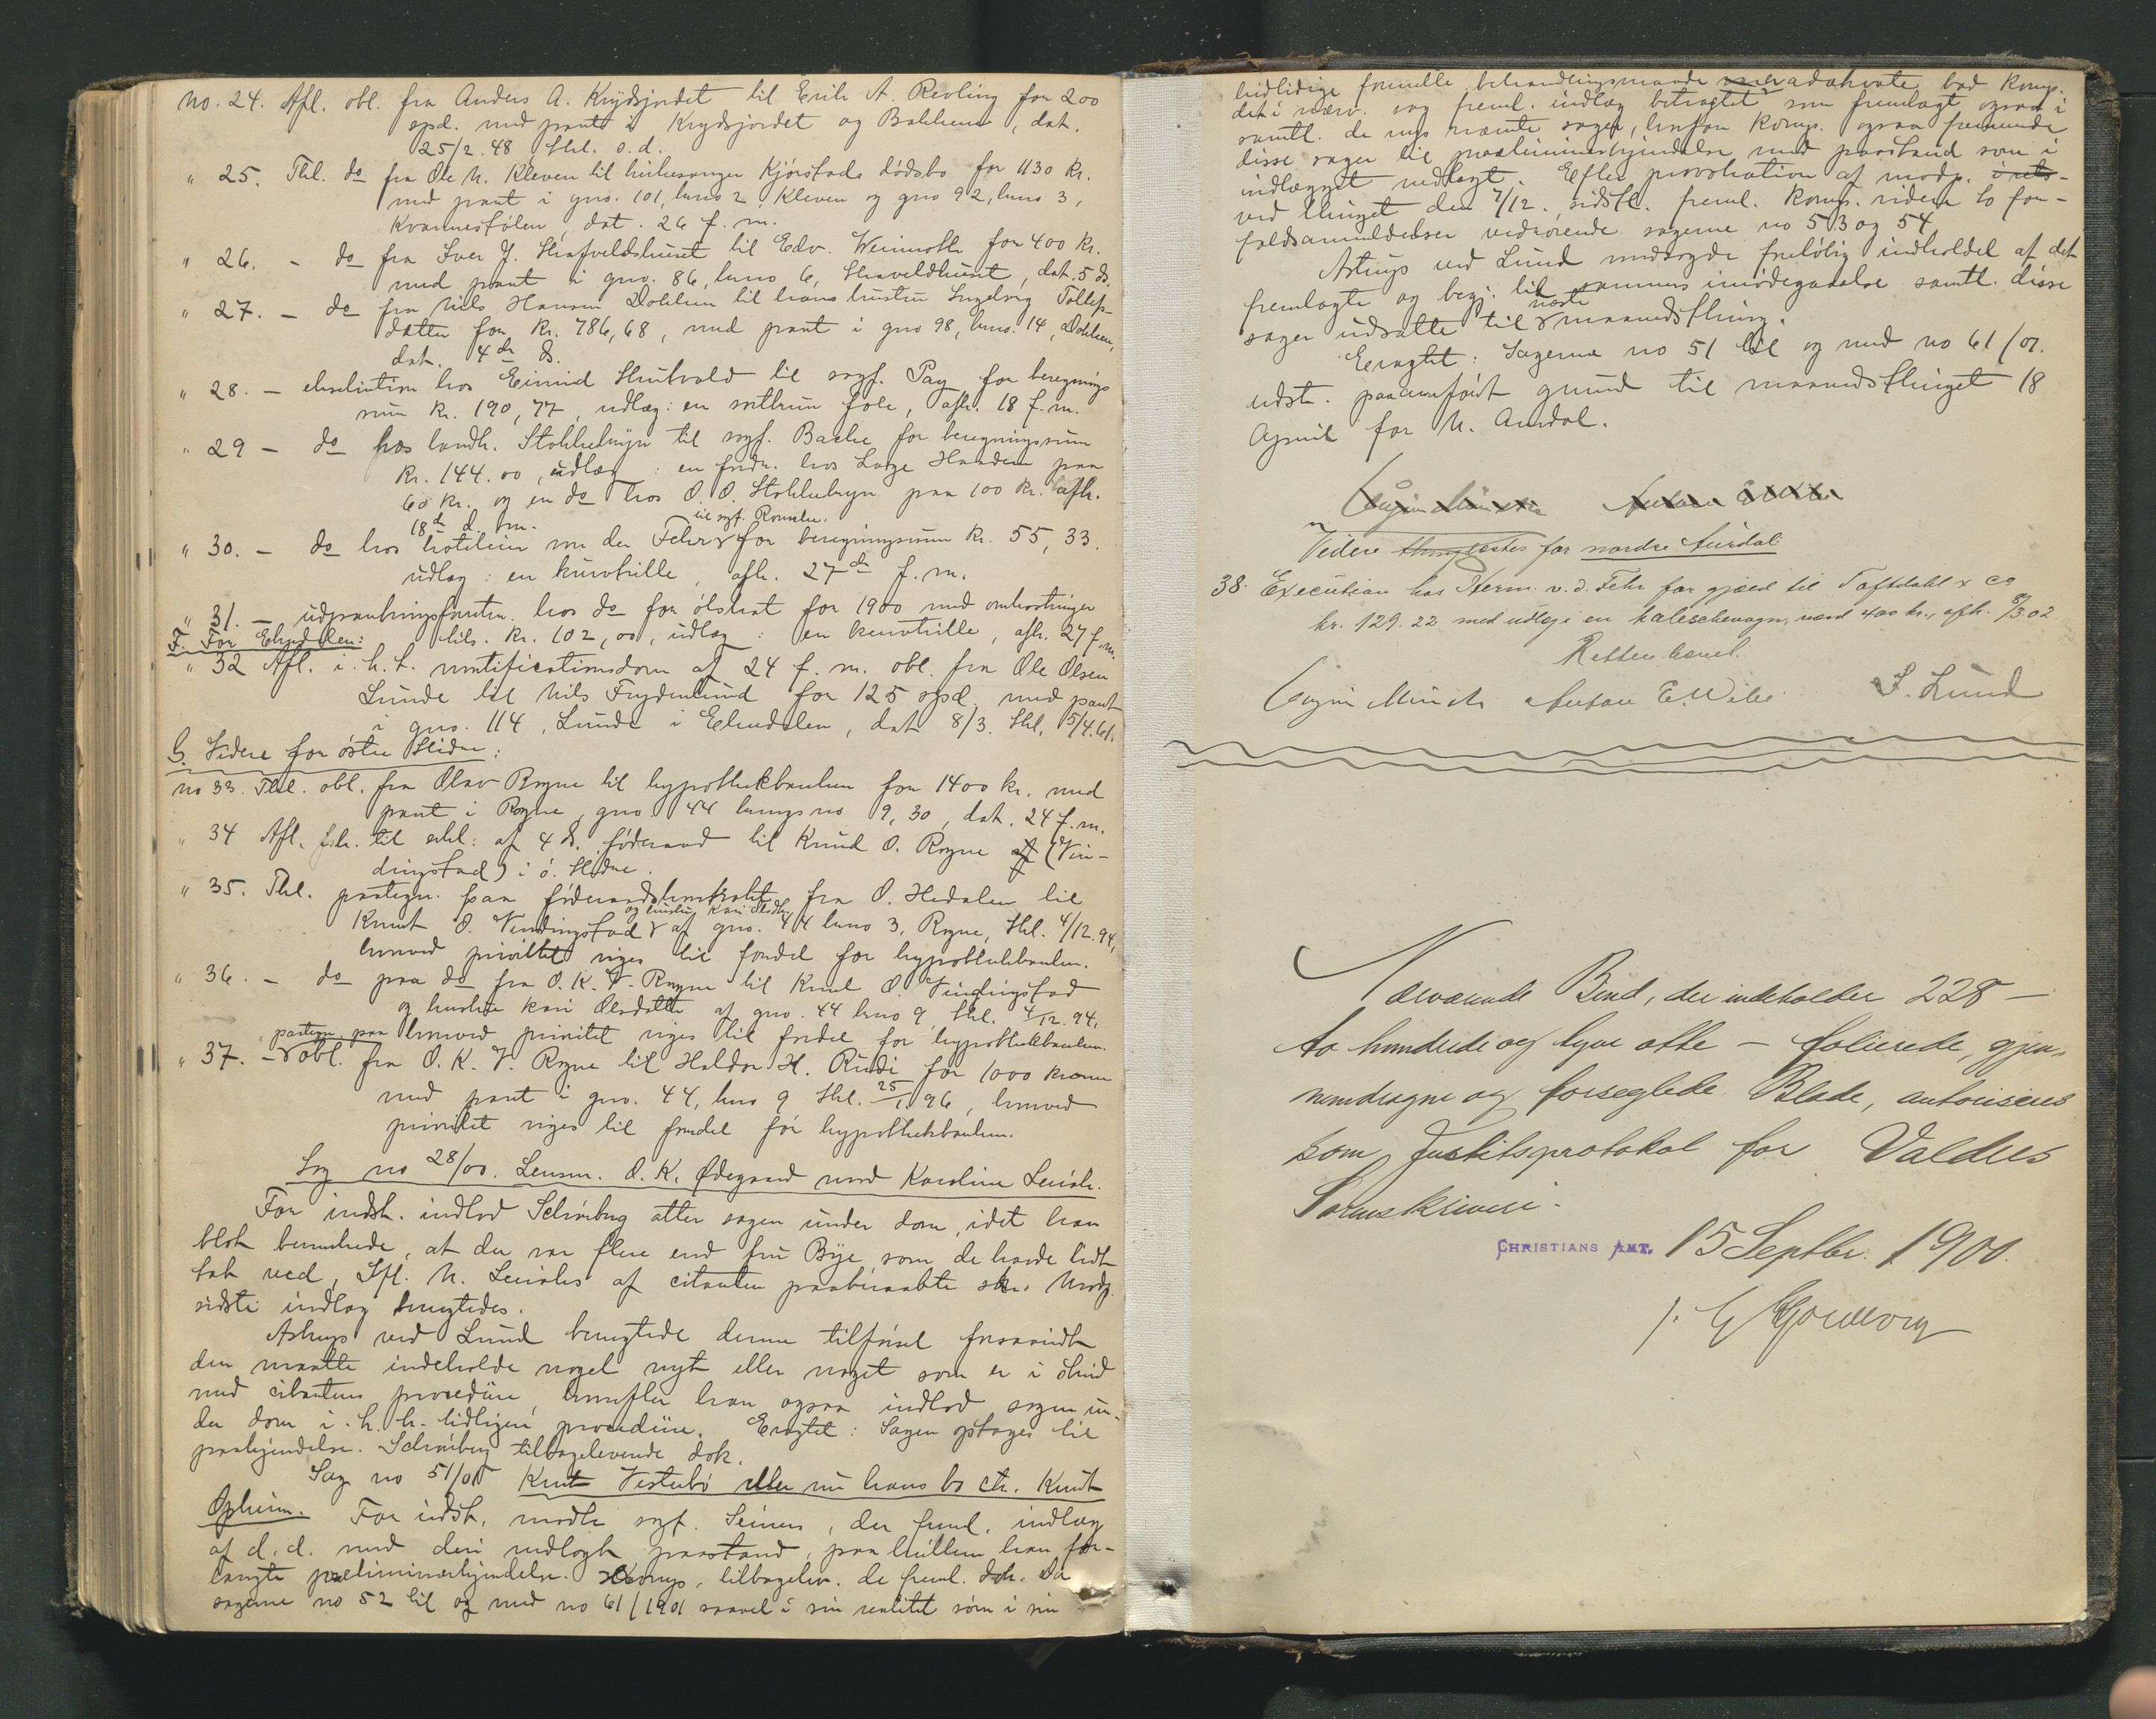 no. 24. Afl. obl. fra Anders A. Krydsjordet til Erik A. Revling for 200
spd. med pant i Krydsjordet og Bakkene, dat.
25/2.48 thl. s.d.
" 25. Thl. do fra Ole N. Kleven til kirkesanger Kjörstads dödsbo for 1130 kr.
med pant i gno. 101, bruno 2, Kleven og gno 92, bruno 3,
Kvannestölen, dat. 26 f. m.
" 26. - do fra Iver J. til Edv. for 400 kr.
med pant i gno. 86, bruno 6, dat. 5 ds.
" 27. - do fra Nils Hansen Dokken til hans hustru Ingebrig Tollefs-
datter for kr. 786,68, med pant i gno 98, bruno. 14, Dokken,
dat. 4de ds.
" 28. - eksekution hos Eivind til sagf. Pay for beregnings
sum kr. 190,77, udlæg: en fole, afh. 18 f. m.
" 29 - do hos landh. Stokkebryn til sagf. Bache for beregningssum
kr. 144.00, udlæg: en fordr. hos Lage paa
60 kr. og en do hos O. O. Stokkebryn paa 100 kr. afh.
18de d. m.
til sagf.
" 30. - do hos von der Fehr for beregningssum kr. 55,33.
udlæg: en kurvtrille, afh. 27de f. m.
" 31. - udpantningsforretn. hos do for ölskat for 1900 med omkostninger
F. For Etnedalen: tils. kr. 102,00, udlæg: en kurvtrille, afh. 27 f. m.
" 32 Afl. i. h. t. mortifications dom af 24 f. m. obl. fra Ole Olsen
Lunde til Nils Frydenlund for 125 spd. med pant
i gno. 114, Lunde i Etnedalen, dat 8/3. thl. 5/4.61.
G. Videre for östre Slidre:
no 33. Thl. obl. fra Olav Rogne til hypothekbanken for 1400 kr. med
pant i Rogne, gno 44 brugsno 9,30, dat. 24 f. m.
" 34 Afl. til erkl: af 4 ds. föderaad til Knud O. Rogne (Vin-
dingstad) i ö. Slidre.
" 35. Thl. paategn. paa föderaadskontrakt fra O. Hedalen til
og hustru Kari Olsdtr
Knut O. Vindingstad af gno. 44 bruno 3, Rogne, thl. 4/12.94,
hvorved prioritet viges til fordel for hypothekbanken.
" 36. - do paa do fra O. K. V. Rogne til Knut O. Vindingstad
og hustru Kari Olsdatter af gno. 44 bruno 9, thl. 4/12.94,
paategn. paa hvorved prioritet viges til fordel for hypothekbanken.
" 37. - obl. fra O. K. V. Rogne til Haldor H. Rudi for 1000 kroner
med pant i gno. 44, bruno 9 thl. 25/1.96, hvorved
prioritet viges til fordel for hypothekbanken.
Sag no 28/00. Lensm. O. K. Ödegaard mod Karoline
For indst. indlod Schönberg atter sagen under dom, idet han
blot bemerkede, at der var flere end fru Bye, som de havde lidt
tab ved, N. af citanten paaberaabte Modp.
sidste indlæg benegtedes.
Astrup ved Lund benegtede denne tilförsel forsaavidt
den maatte indeholde noget nyt eller noget som er i strid
med citantens procedüre, hvorefter han ogsaa indlod sagen un-
der dom i. h. t. tidligere procedüre. Eragtet: Sagen optages til
paakjendelse. Schönberg tilbagelevende dok.
Sag no 51/01 Knut Vesterbö eller nu hans bo ctr. Knut
Opheim. For indst. mödte sagf. , der freml. indlæg
af d. d. med deri nedlagt paastand, paa hvilken han for-
langte præliminærkjendelse. Komp. tilbagelev. de freml. dok. Da
sagerne no 52 til og med no 61/1901 saavel i sin realitet som i sin
hidtidige formelle behandlingsmaade bad Komp.
det i nærv. sag freml. indlæg betragtet som fremlagt ogsaa i
samtl. de nys nævnte sager, hvorfor Komp. ogsaa fremmede
disse sager til præliminærkjendelse med paastand som i
indlægget nedlagt. Efter provokation af modp.
ved thinget den 7/12. sidstl. freml. Komp. videre to for-
faldsanmeldelser vedrörende sagerne no 53 og 54
Astrup ved Lund modsagde forelöbig indholdet af det
fremlagte og begj. til sammes imödegaaelse samtl. disse
næste
sager udsatte til maanedsthing.
Eragtet: Sagerne no 51 til og med no 61/01.
udst. paa anfört grund til maanedsthinget 18
April for N. Aurdal.
Videre for nordre Aurdal
38. Execution hos Herm. v. d. Fehr for gjæld til Toftdahl & Co
kr. 129.22 med udlæg i en kaleschevogn, værd 400 kr., afh. 8/3.02
Retten hævet.
Münch Anton E. Wibe S. Lund
Nærværende Bind, der indeholder 228 -
to hundrede og tyve otte - folierede, gjen-
nemdragne og forseglede Blade, autoriseres
som Justitsprotokol for Valdres
Sorenskriveri.
CHRISTIANS AMT. 15 Septbr. 1900.